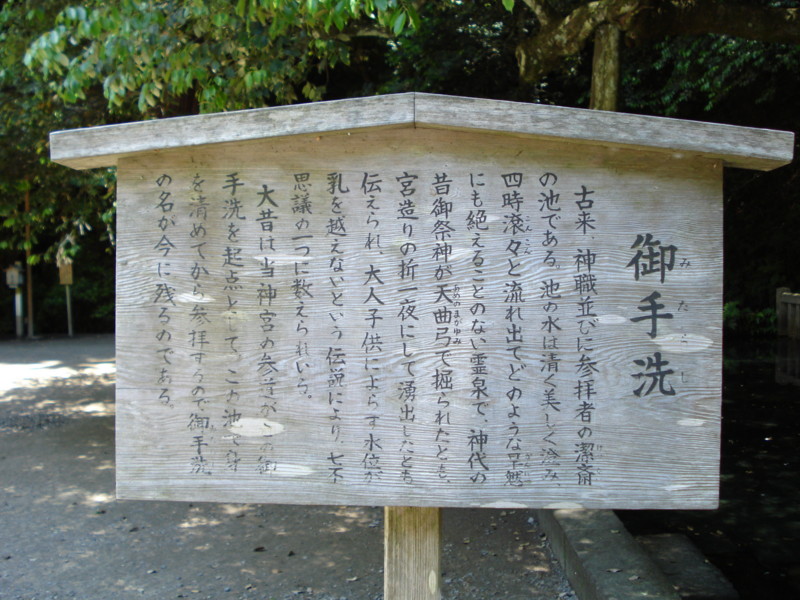 御手洗
みたらし
古来、神職並びに参拝者の潔斎
の池である。池の水は清く美しく澄み、
四時滾々と流れ出てどのような旱魃
にも絶えることのない霊泉で、神代の
昔御祭神が天曲弓で掘られたとも、
宮造りの折一夜にして湧出したとも
伝えられ、大人子供によらず水位が
乳を越えないという伝説により、七不
思議の一つに数えられている。
大昔は当神宮の参道がこの御
手洗を起点として、この池で身
を清めてから参拝するので御手洗
の名が今に残るのである。